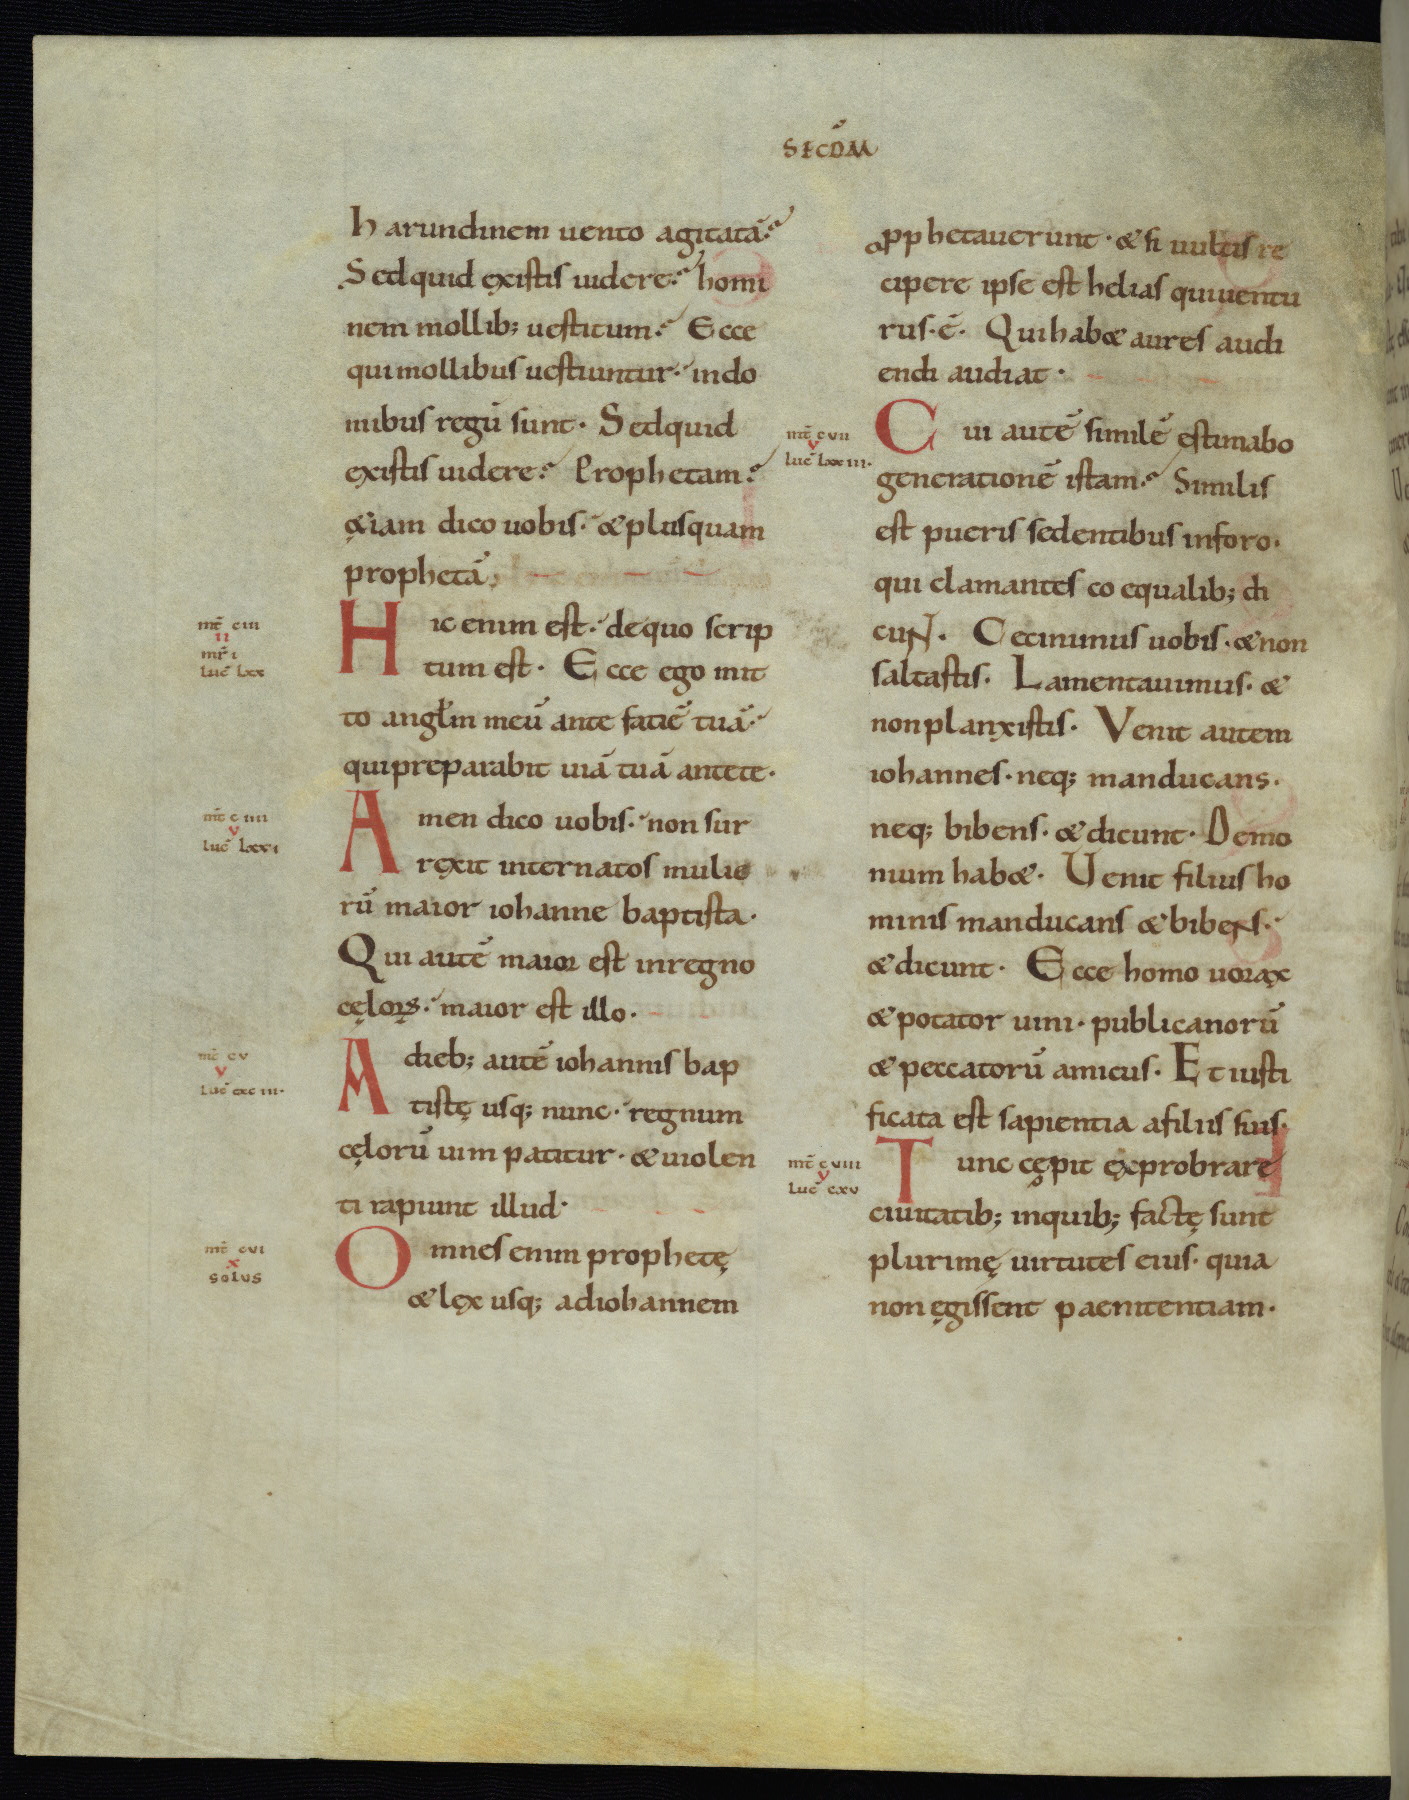 SECDM̃
harundinem uento agitatā
Sed quid existis uidere. homi
nem mollib; uestitum. Ecce
qui mollibus uestiuntur. in do
mibus regū sunt. Sed quid
existis uidere. Prophetam.
ętiam dico uobis. & plus quam
prophetā.
mt̄ ciii
ii
mr̄ i
luc̄ lxx
Hic enim est. de quo scrip
tum est. Ecce ego mit
to angłm meū ante faciē tuā.
qui preparabit uiā tuā ante te.
mt̄ ciiii
v
luc̄ lxxi
Amen dico uobis. non sur
rexit inter natos mulie
rū maior iohanne baptista.
Qui autē maior est in regno
cęloꝝ. maior est illo.
mt̄ cv
v
luc̄ cxciii.
A dieb; autē iohannis bap
tistę usq; nunc. regnum
cęlorū uim patitur. & uiolen
ti rapiunt illud.
mt̄ cvi
x
solus
Omnes enim prophetę
& lex usq; ad iohannem
ꝓphetauerunt. & si uultis re
cipere ipse est helias qui uentu
rus. ē. Qui hab& aures audi
endi audiat.
mt̄ cvii
v
luc̄ lxxiii.
Cui autē similē estimabo
generationē istam. Similis
est pueris sedentibus in foro.
qui clamantes coequalib; di
cuN. Cecinimus uobis. & non
saltastis. Lamentauimus. &
non planxistis. Venit autem
iohannes. neq; manducans.
neq; bibens. & dicunt. Demo
nium hab&. Uenit filius ho
minis manducans & bibeNs.
& dicunt. Ecce homo uorax
& potator uini. publicanorū
& peccatorū amicus. Et iusti
ficata est sapientia a filiis suis.
mt̄ cviii
v
luc̄ cxv
Tunc cępit exprobrare
ciuitatib; in quib; factę sunt
plurimę uirtutes eius. quia
non ęgissent paenitentiam.